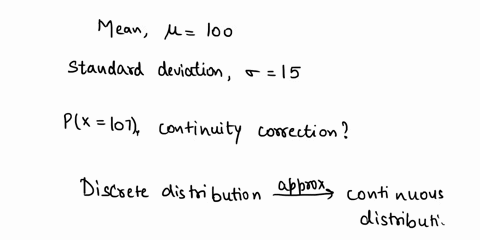 Mean, μ = 100
Standard deviation, σ = 15
P(x = 107), continuity correction?
Discrete distribution approx→ continuous
distributi.